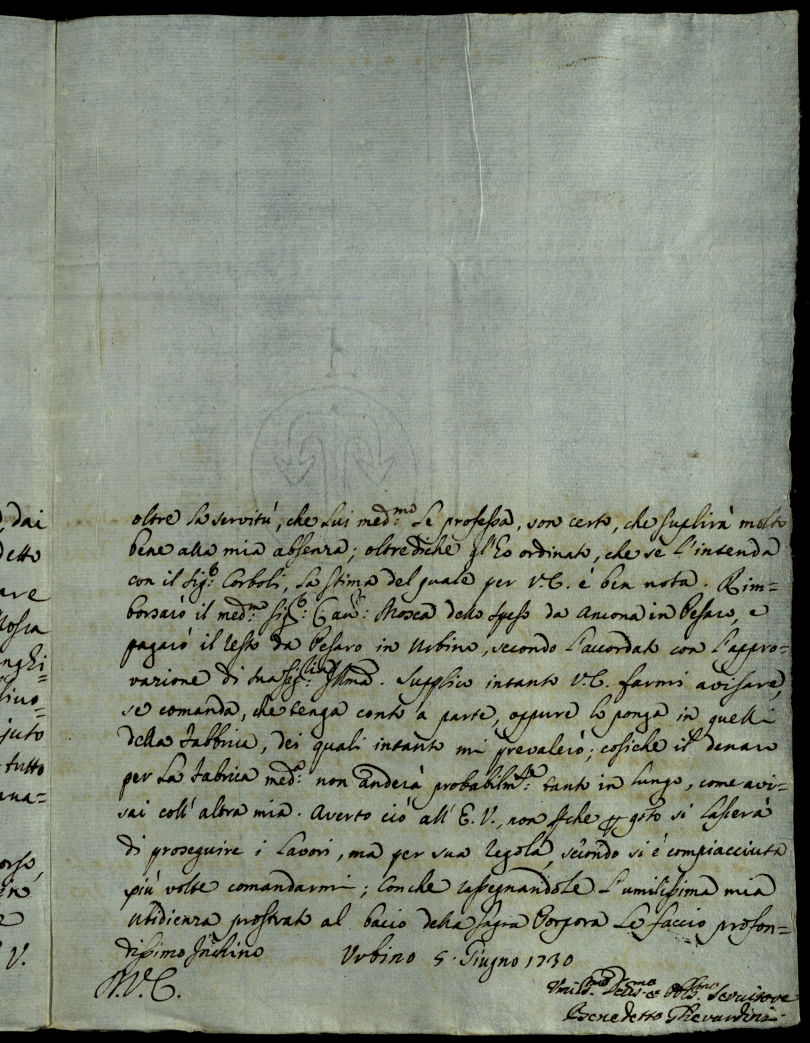 dai
detto
are
Mosca
nghi=
livo=
juto
tutto
ana=
orso,
en
e
V.
oltre la servitú, che lui med.mo Le professa, son certo, che suplirà molto
bene alla mia absenza; oltredíche gl'ho ordinato, che se l'intenda
con il Sig.r Corboli, la stima del quale per V.E. é ben nota. Rim=
borsaró il med.mo Sig.r Cav.r Mosca delle spese da Ancona in Pesaro, e
pagaró il resto da Pesaro in Urbino, secondo l'accordato con l'appro=
vazione di sua Sig.ria Ill.ma. Supplico intanto V.E. farmi avisare,
se comanda, che tenga conto à parte, oppure lo ponga in quelli
della Fabbrica, dei quali intanto mi prevaleró; cosiche il denaro
per la Fabrica med.a non anderà probabilm.te tanto in lungo, come avi=
sai coll'altra mia. Averto ció all'E.V., non che si lasserà
di proseguire i lavori, ma per sua regola, secondo si é compiacciuta
piú volte comandarmi; Con che rassegnandole l'umilissima mia
ubidienza prostrato al bacio della Sagra Porpora Le faccio profon=
dissimo Inchino Urbino 5. Giugno 1730
D.V.E.
Umil.mo Dev.mo et Obl.mo Servitore
Benedetto Ghevardini